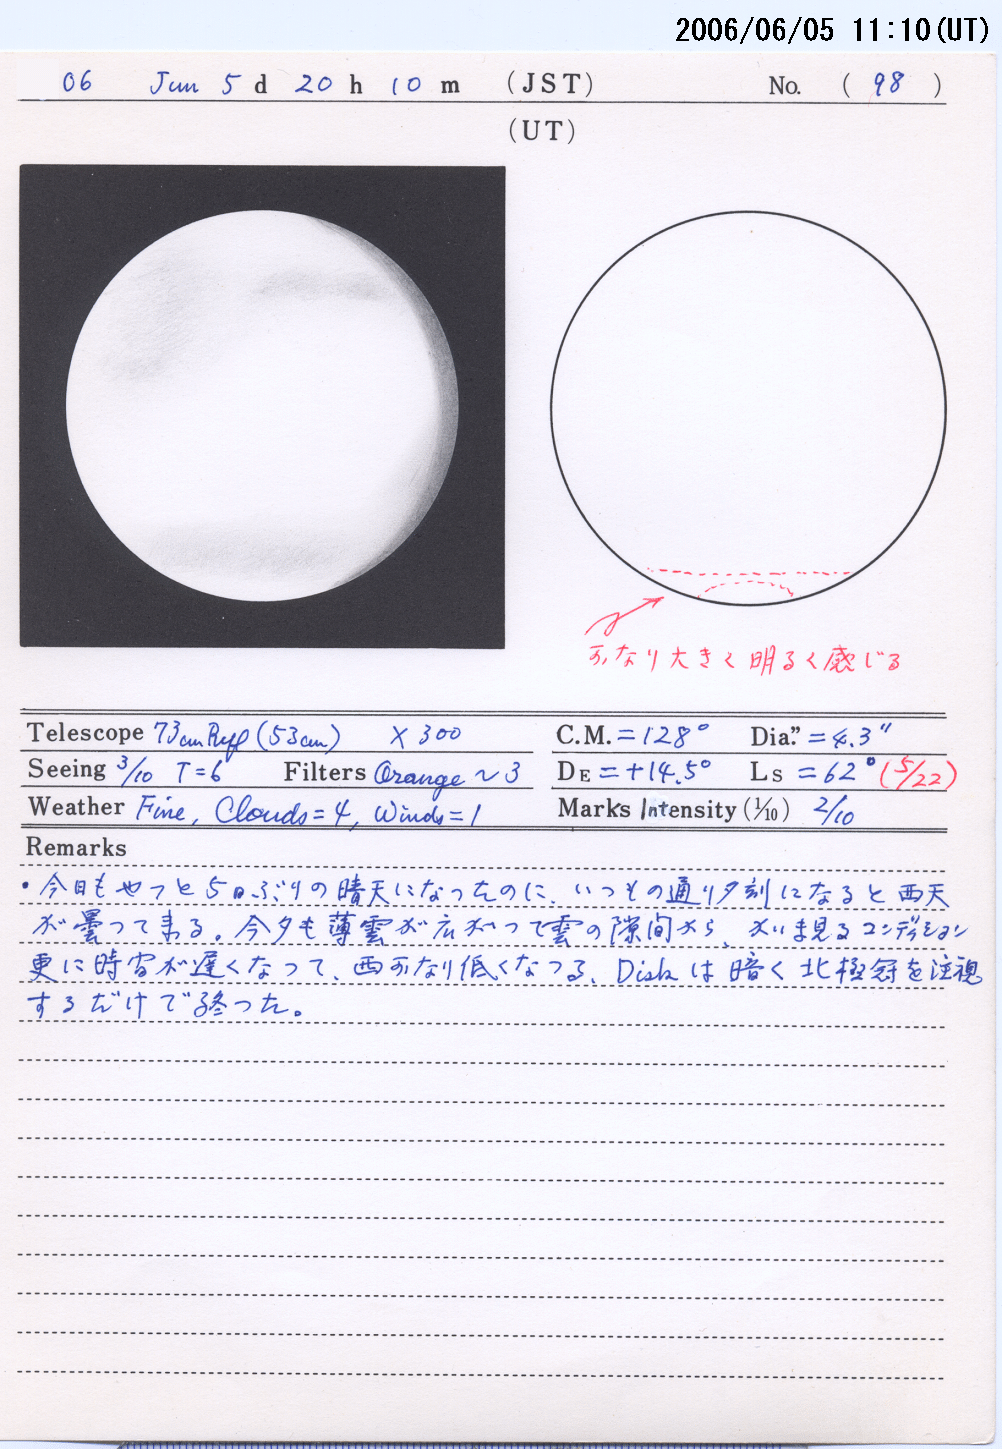 2006/06/05 11:10(UT)
06 Jun 5 d 20 h 10 m (JST) No. ( 98 )
(UT)
かなり大きく明るく感じる
Telescope 73cm Refl (53cm) × 300
C.M. = 128° Dia." = 4.3"
Seeing 3/10 T=6 Filters Orange ~ 3
DE = +14.5° Ls = 62° (5/22)
Weather Fine, Clouds=4, Winds=1
Marks Intensity (1/10) 2/10
Remarks
・今日もやっと5日ぶりの晴天になったのに、いつもの通り夕刻になると西天
が曇って来る。今夕も薄雲が広がって雲の隙間から、かいま見るコンディション
更に時宙が遅くなって、西かなり低くなつる、Diskは暗く北極冠を注視
するだけで終った。